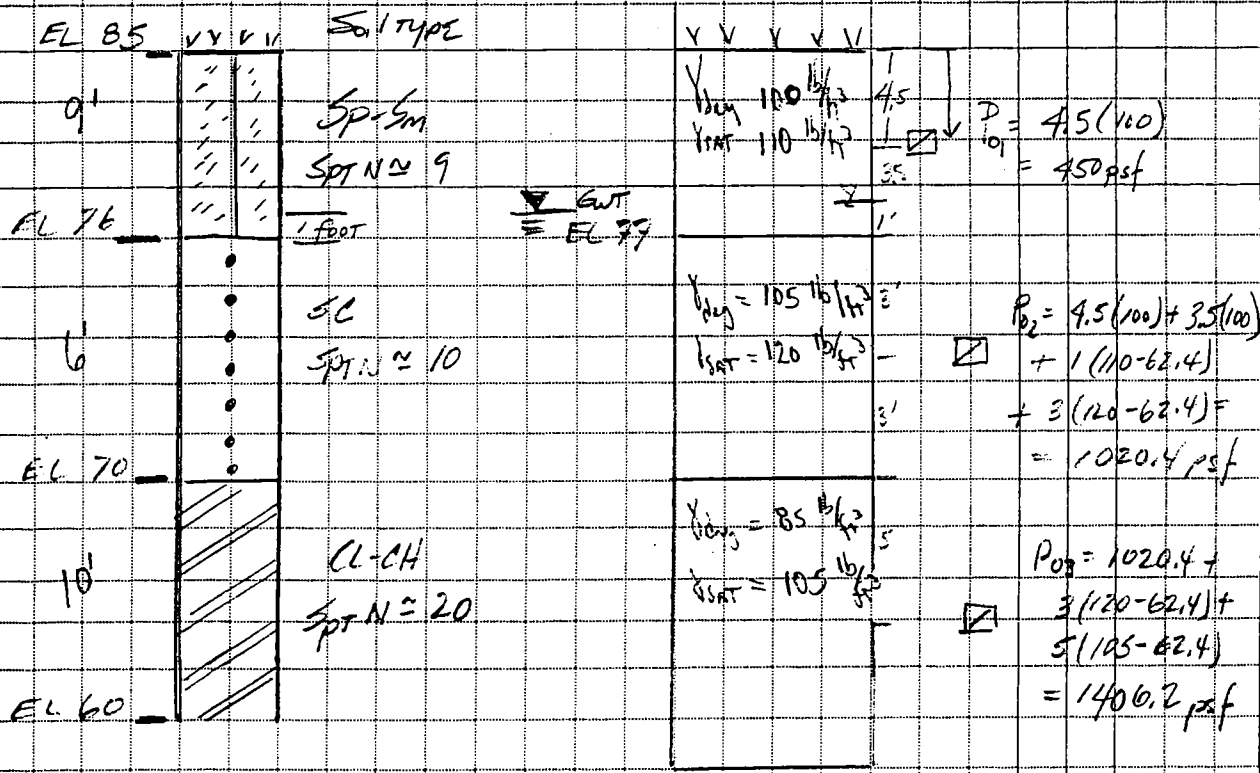 EL 85
Soil TYPE
9'
SP-SM
SPT N ≅ 9
EL 76
1 foot
GWT
EL 77
6'
SC
SPT N ≅ 10
EL 70
10'
CL-CH
SPT N ≅ 20
EL 60
γdry 100 lb/ft³
γSAT 110 lb/ft³
4.5
3.5
1'
γdry = 105 lb/ft³
γSAT = 120 lb/ft³
3'
3'
γdry = 85 lb/ft³
γSAT = 105 lb/ft³
5'
Po1 = 4.5(100)
= 450 psf
Po2 = 4.5(100) + 3.5(100)
+ 1(110-62.4)
+ 3(120-62.4) =
= 1020.4 psf
Po3 = 1020.4 +
3(120-62.4) +
5(105-62.4)
= 1406.2 psf